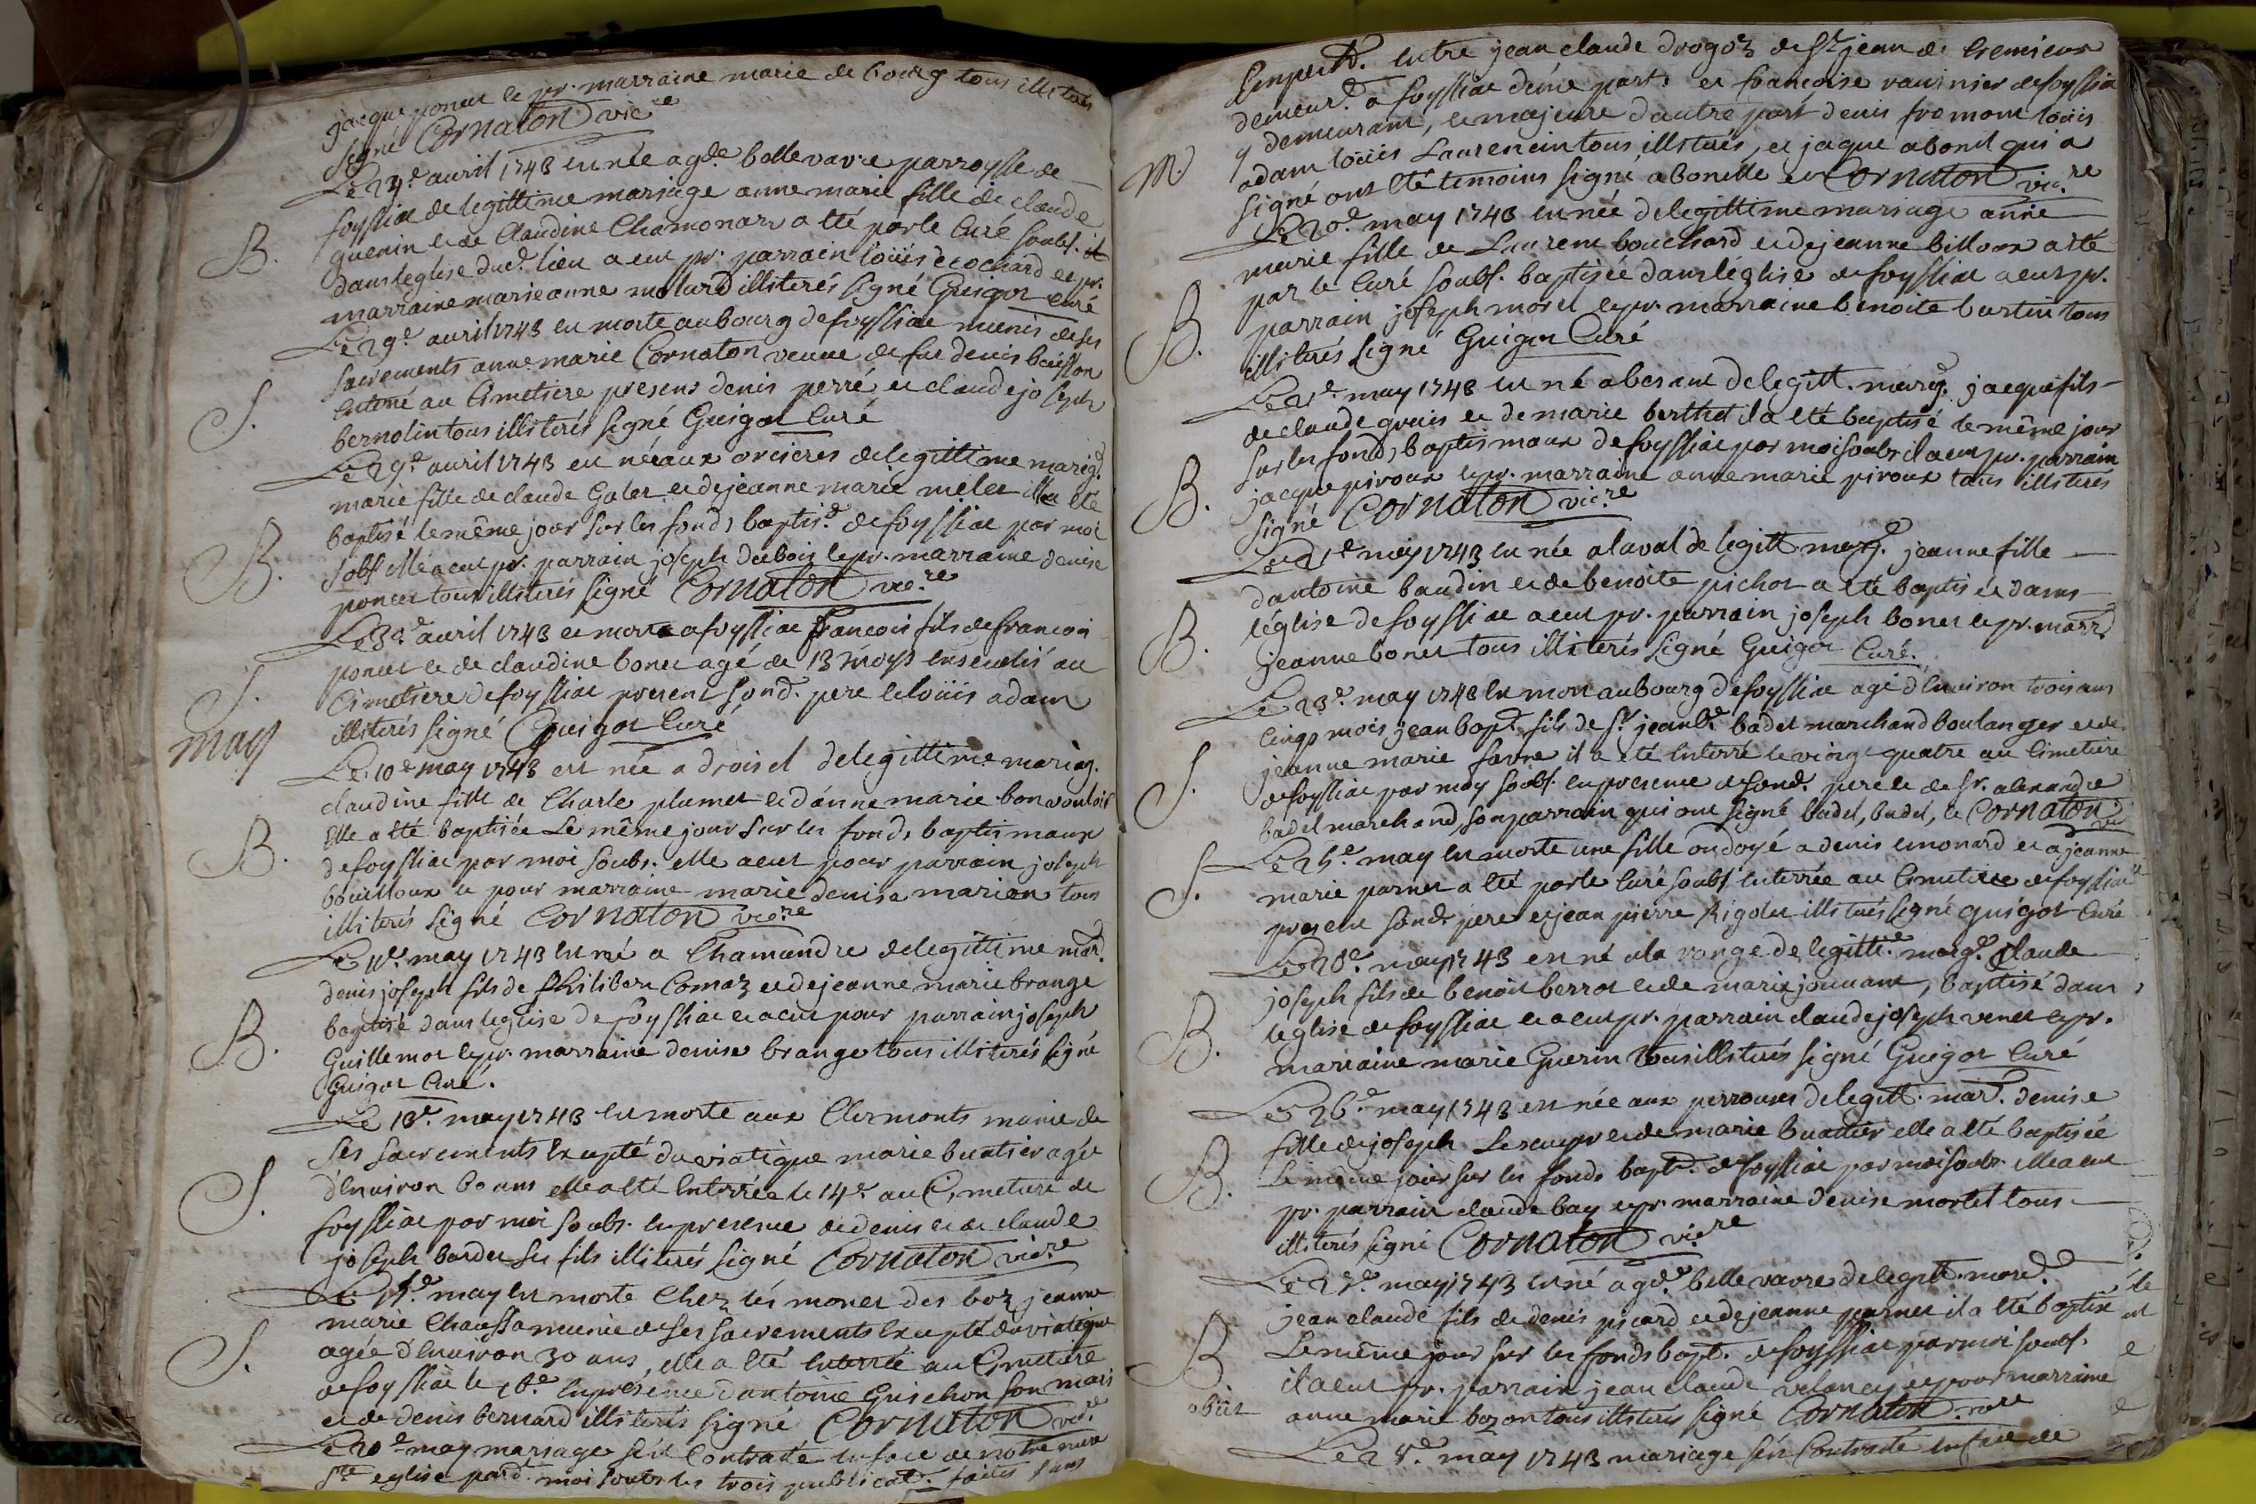 jacque poncet et pr. marraine marie de bourg tous illiterés
signé Cornaton vic.re
Le 24.e avril 1743 est née a g.de bellevavre parroysse de
foyssiac de legittime mariage anne marie fille de claude
guerin et de Claudine Chamonar a été par le Curé soubs.
B.
dans leglise dud. lieu a eu pr. parrain loüis et pr.
marraine marie anne molard illiterés signé Guigot curé
Le 29.e avril 1743 est morte au bourg de foyssiac munis de ses
sacrements anne marie Cornaton veuve de feu denis buisson
S.
enterré au Cimetiere presens denis perré et claude joseph
bernolin tous illiterés signé Guigot Curé
Le 29.e avril 1743 est née aux orcieres de legittime mariag.
marie fille de claude Galet et de jeanne marie melet elle a été
B.
baptisé le même jour sur les fonds baptis.e de foyssiac par moi
soubs elle a eu pr. parrain joseph dubois et pr. marraine denise
poncet tous illiterés signé Cornaton vic.re
Le 30.e avril 1743 est mort a foyssiac françois fils de françois
S.
poncet et de claudine bonet agé de 13 moys enseveli au
Cimetiere de foyssiac present sond. pere et loüis adam
illiterés signé Guigot Curé
may
Le 10.e may 1743 est née a droisel de legittime mariag.
claudine fille de Charle plumet et d'anne marie bonvouloir
B.
elle a été baptisée Le même jour sur les fonds baptismaux
de foyssiac par moi soubs. elle a eut pour parrain joseph
bouilloux et pour marraine marie denise marion tous
illiterés signé Cornaton vic.re
Le 11.e may 1743 est né a Chamandre de legittime mar.
denis joseph fils de Philibert Comaz et de jeanne marie brange
B.
baptisé dans leglise de foyssiac et a eut pour parrain joseph
Guillemot et pr. marraine denise brange tous illiterés signé
Guigot Curé.
Le 13.e may 1743 est morte aux Clermonts munie de
ses sacrements Excepté du viatique marie buatier agée
S.
d'Environ 60 ans elle a été Enterrée le 14.e au Cimetiere de
foyssiac par moi soubs. en presence de denis et de claude
joseph bardet ses fils illiterés signé Cornaton vic.re
Le 15.e may est morte Chez les monet des boz jeanne
marie Chaussa munie de ses sacrements Excepté du viatique
S.
agée d'Environ 30 ans, elle a été Enterrée au Cimetiere
de foyssiac le 16.e En presence d'antoine Guichon son mari
et de denis bernard illiterés signé Cornaton vic.re
Le 20.e may mariage s'est Contracté en face de notre mere
S.te eglise pard. moi soubs les trois publicat. faites sans
Empech. entre jean claude drogoz de S.t jean de
demeur.t a foyssiac d'une part et françoise vauinier de foyssia
y demeurant, et majeure d'autre part denis fromont loüis
M.
adam loüis Laurencin tous illiterés, et jaque abonel qui a
signé ont été temoins signé abonelle et Cornaton vic.re
Le 20.e may 1743 est née de legittime mariage anne
marie fille de Laurent bouchard et de jeanne billoux a été
B.
par le Curé soubs. baptisée dans l'église de foyssiac a eut pr.
parrain joseph morel et pr. marraine benoite bertin tous
illiterés signé Guigot Curé
Le 21.e may 1743 est né a besant de legitt. mariag. jacque fils
de claude gouis et de marie berthet il a été baptisé le même jour
B.
sur les fonds baptismaux de foyssiac par moi soubs il a eu pr. parrain
jacque piroux et pr. marraine anne marie piroux tous illiterés
signé Cornaton vic.re
Le 21.e may 1743 est née a laval de legitt mariag. jeanne fille
d'antoine baudin et de benoite pichot a été baptisée dans
B.
l'église de foyssiac a eut pr. parrain joseph bonet et pr. marr.
jeanne bonet tous illiterés signé Guigot Curé.
Le 23.e may 1743 est mort au bourg de foyssiac agé d'Environ trois ans
cinqs mois jean bapt. fils de s.r jean b.te badel marchand boulanger et de
S.
jeanne marie favre il a été Enterré le vingt quatre au Cimetiere
de foyssiac par moy soubs. en presence de sond. pere et de sr. alexandre
badel marchand, son parrain qui ont signé badel, badel, et Cornaton vic
Le 25.e may est morte une fille ondoyé a denis emonard et a jeanne
S.
marie parnet a été par le Curé soubs enterrée au Cimetiere de foyssiac
present sond. pere et jean pierre Rigolet illiterés signé Guigot Curé
Le 28.e may 1743 est né a la range de legitt.e mariag.e Claude
joseph fils de benoit berrot et de marie jouuant, baptisé dans
B.
leglise de foyssiac et a eut pr. parrain claude joseph venet et pr.
marraine marie Guerin tous illiterés signé Guigot Curé
Le 26.e may 1743 est née aux perrouses de legitt. mar. denise
fille de joseph et de marie buattier elle a été baptisée
B.
Le même jour sur les fonds bapt.e de foyssiac par moi soubs. elle a eut
pr. parrain claude bay et pr. marraine denise mortel tous
illiterés signé Cornaton vic.re
Le 27.e may 1743 est né a g.de belle vavre de legitt. mar.e
jean claude fils de denis picard et de jeanne parnet il a été baptisé
B
Le même jour sur les fonds bapt. de foyssiac par moi soubs.
il a eut pr. parrain jean claude velancy et pour marraine
obiit
anne marie bozon tous illiterés signé Cornaton vic.re
Le 28.e may 1743 mariage s'est Contracté en face de